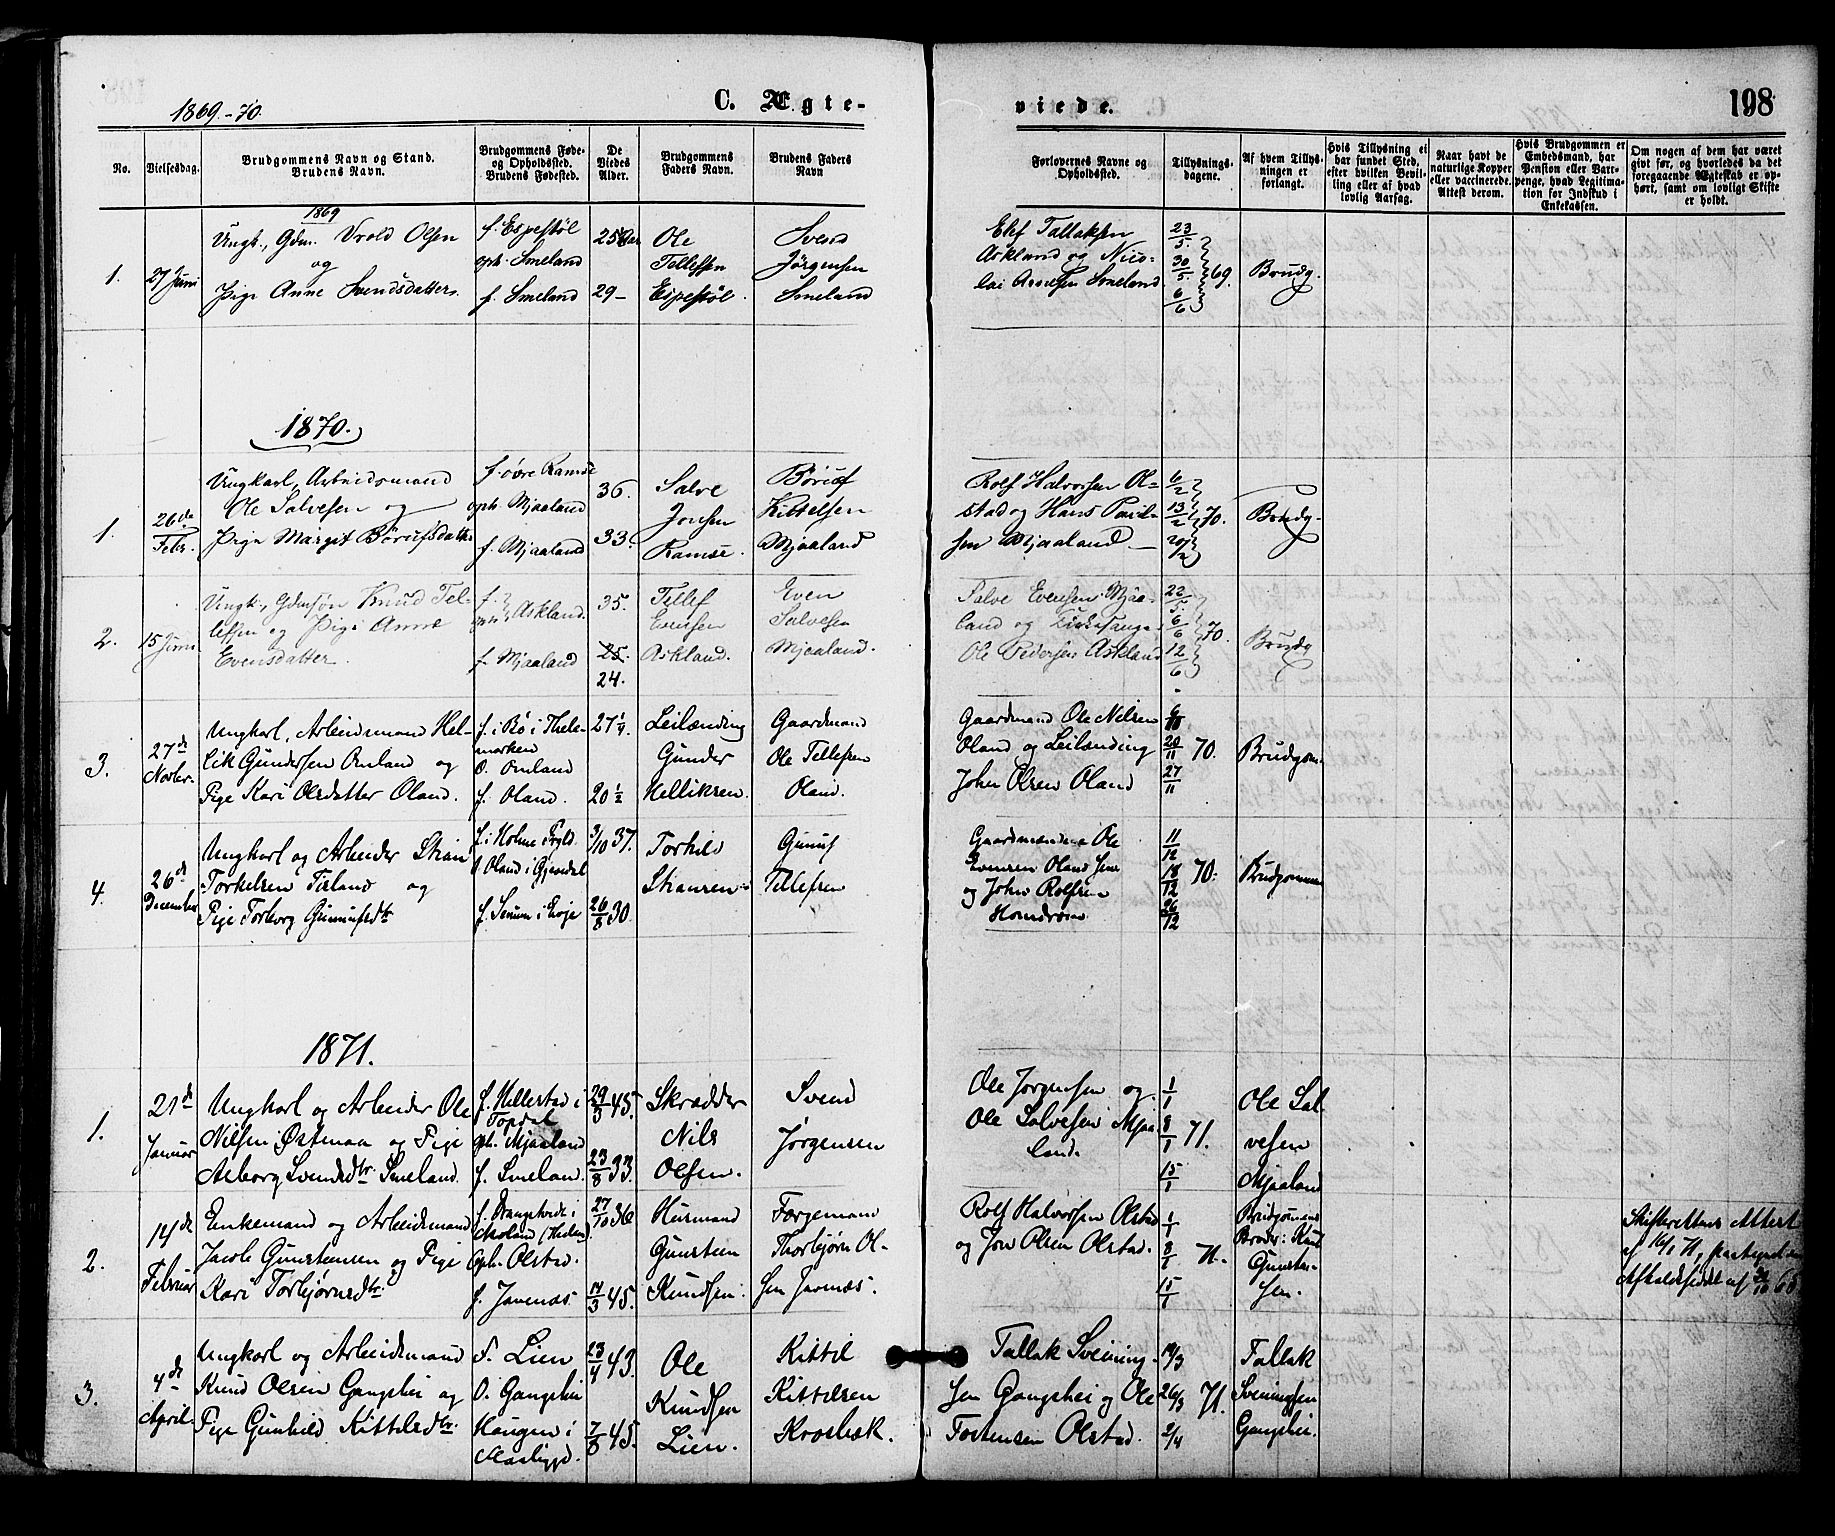 1869.-70.
C. Ægte-
viede.
198
No.
Vielsesdag.
Brudgommens Navn og Stand.
Brudens Navn.
Brudgommens Føde-
og Opholdssted.
Brudens Fødested.
De
Viedes
Alder.
Brudgommens
Faders Navn.
Brudens Faders
Navn
Forlovernes Navne og
Opholdssted.
Tillysnings-
dagene.
Af hvem Tillys-
ningen er
forlangt.
Hvis Tillysning ei
har fundet Sted,
efter hvilken Bevil-
ling eller af hvad
lovlig Aarsag.
Naar havt de
naturlige Kopper
eller vaccinerede.
Attest derom.
Hvis Brudgommen er
Embedsmand, har
Pension eller Vart-
penge, hvad Legitima-
tion for Indskud i
Enkekassen.
Om nogen af dem har været
givt før, og hvorledes da det
foregaaende Ægteskab er op-
hørt, samt om lovligt Skifte
er holdt.
1869
1.
27 Juni
Ungk., Gdm. Vrold Olsen
og
Pige Anne Svendsdatter.
f. Espestøl
oph. Smeland
f. Smeland
25 Aar
29-
Ole
Tellefsen
Espestøl.
Svend
Jørgensen
Smeland
Elef Tallaksen
Askland og Nico-
lai Smeland
23/5.
30/5.
6/6
69.
Brudg.
1870.
1.
26de
Febr.
Ungkarl, Arbeidsmand
Ole Salvesen og
Pige Margit Børufsdatter
f. øvre Ramse
oph. Mjaaland
f. Mjaaland
36.
33.
Salve
Jonsen
Ramse.
Børuf
Kittelsen
Mjaaland
Rolf Halvorsen Ol-
stad og Hans Paul-
sen Mjaaland
6/2
13/2
20/2
70.
Brudg.
2.
15 Juni
Ungk., Gdmsøn Knud Tel-
lefsen og Pige Anne
Evensdatter.
f.
oph. Askland.
f. Mjaaland
35.
25.
24.
Tellef
Evensen
Askland.
Even
Salvesen
Mjaaland.
Salve Evensen Mjaa-
land og Kirkesanger
Ole Pedersen Askland
22/5.
6/6
12/6
70.
Brudg
3.
27de
Novbr.
Ungkarl, Arbeidsmand Hel-
lik Gundersen Omland og
Pige Kari Olsdatter Oland.
f. i Bø i Thele-
marken
O. Omland
f. Oland.
27 1/4
20 1/2
Leilænding
Gunder
Helliksen.
Gaardmand
Ole Tellefsen
Oland.
Gaardmand Ole Nilsen
Oland og Leilænding
John Olsen Oland
6/11
20/11
27/11
70.
Brudgom.
4.
26de
December
Ungkarl og Arbeider Stian
Torkelsen og
Pige Torborg Gunnufsdtr
f. i Holme
Oland i Gjøvdal
f. Senum i Evje
3/10 37.
26/8 30
Torkild
Stiansen
Gunuf
Tellefsen
Gaardmændene Ole
Evensen Oland
og John Rolfsen
Homdrom
11/12
18/12
26/12
70.
Brudgommen
1871.
1.
21de
Januar
Ungkarl og Arbeider Ole
Nilsen Østmoa og Pige
Aaborg Svendsdtr. Smeland.
f. Hillestad i
Topdal
oph. Mjaaland
f. Smeland.
29/8 45.
23/8 33.
Skrædder
Nils
Olsen.
Svend
Jørgensen
Ole Jørgensen og
Ole Salvesen Mjaa-
land.
1/1
8/1
15/1
71.
Ole Sal-
vesen
Mjaaland
2.
14de
Februar
Enkemand og Arbeidsmand
Jacob Gunstensen og Pige
Kari Torbjørnsdtr.
f.
oph. Olstad.
f. Javenæs.
27/10 36
14/3 45.
Husmand
Gunsteen
Knudsen.
Færgemand
Thorbjørn Ol-
sen Javnæs.
Rolf Halvorsen Olstad
og Jon Olsen Olstad.
1/1
8/1
15/1
71.
Brudgommens
Broder: Knud
Gunstein-
sen.
Skifterettens Attest
af 16/1 71,
3.
4de
April.
Ungkarl og Arbeidsmand
Knud Olsen Gangshei og
Pige Gunhild Kittelsdtr.
F. Lien
O. Gangshei
Haugen i
23/4 43.
7/8 45.
Ole
Knudsen
Lien.
Kittil
Kittelsen
Krosbæk.
Tallak Svenning-
sen Gangshei og Ole
Torstensen Olstad.
19/3
26/3
2/4
71.
Tallak
Svenningsen
Gangshei.